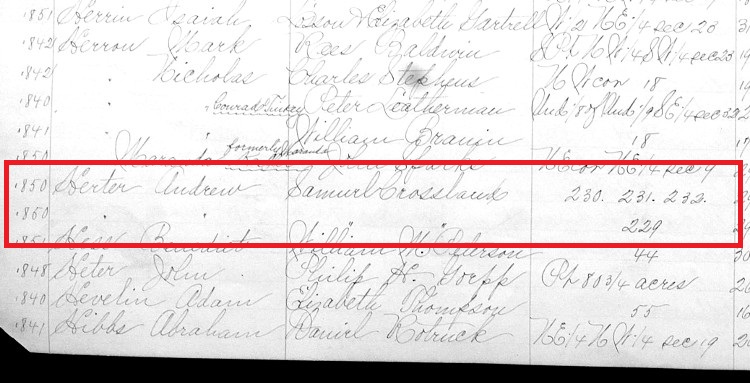 1851 Herrin Isaiah Elizabeth Hartzell W 21 NE 1/4 sec 23
1842 Herron Mark Rees Baldwin Pt N W 1/4 S W 1/4 sec 23
1842 " Nicholas Charles Stephens N W cor 18
1840 " " Conrad Tinkey Peter Leatherman Und 1/8 of Und 1/9 S E 1/4 sec 22
1841 " " William 18
1850 formerly NE cor NE 1/4 sec 9
1850 Herter Andrew Samuel Crossland 230. 231. 232.
1850 " " " 229
1851 Hess Benedict William McPeterson 44
1848 Heter John Philip H. Gorpp Pt 80 3/4 acres
1840 Hevelin Adam Elizabeth Thompson 55
1841 Hibbs Abraham Daniel Kotruck NE 1/4 N W 1/4 sec 19